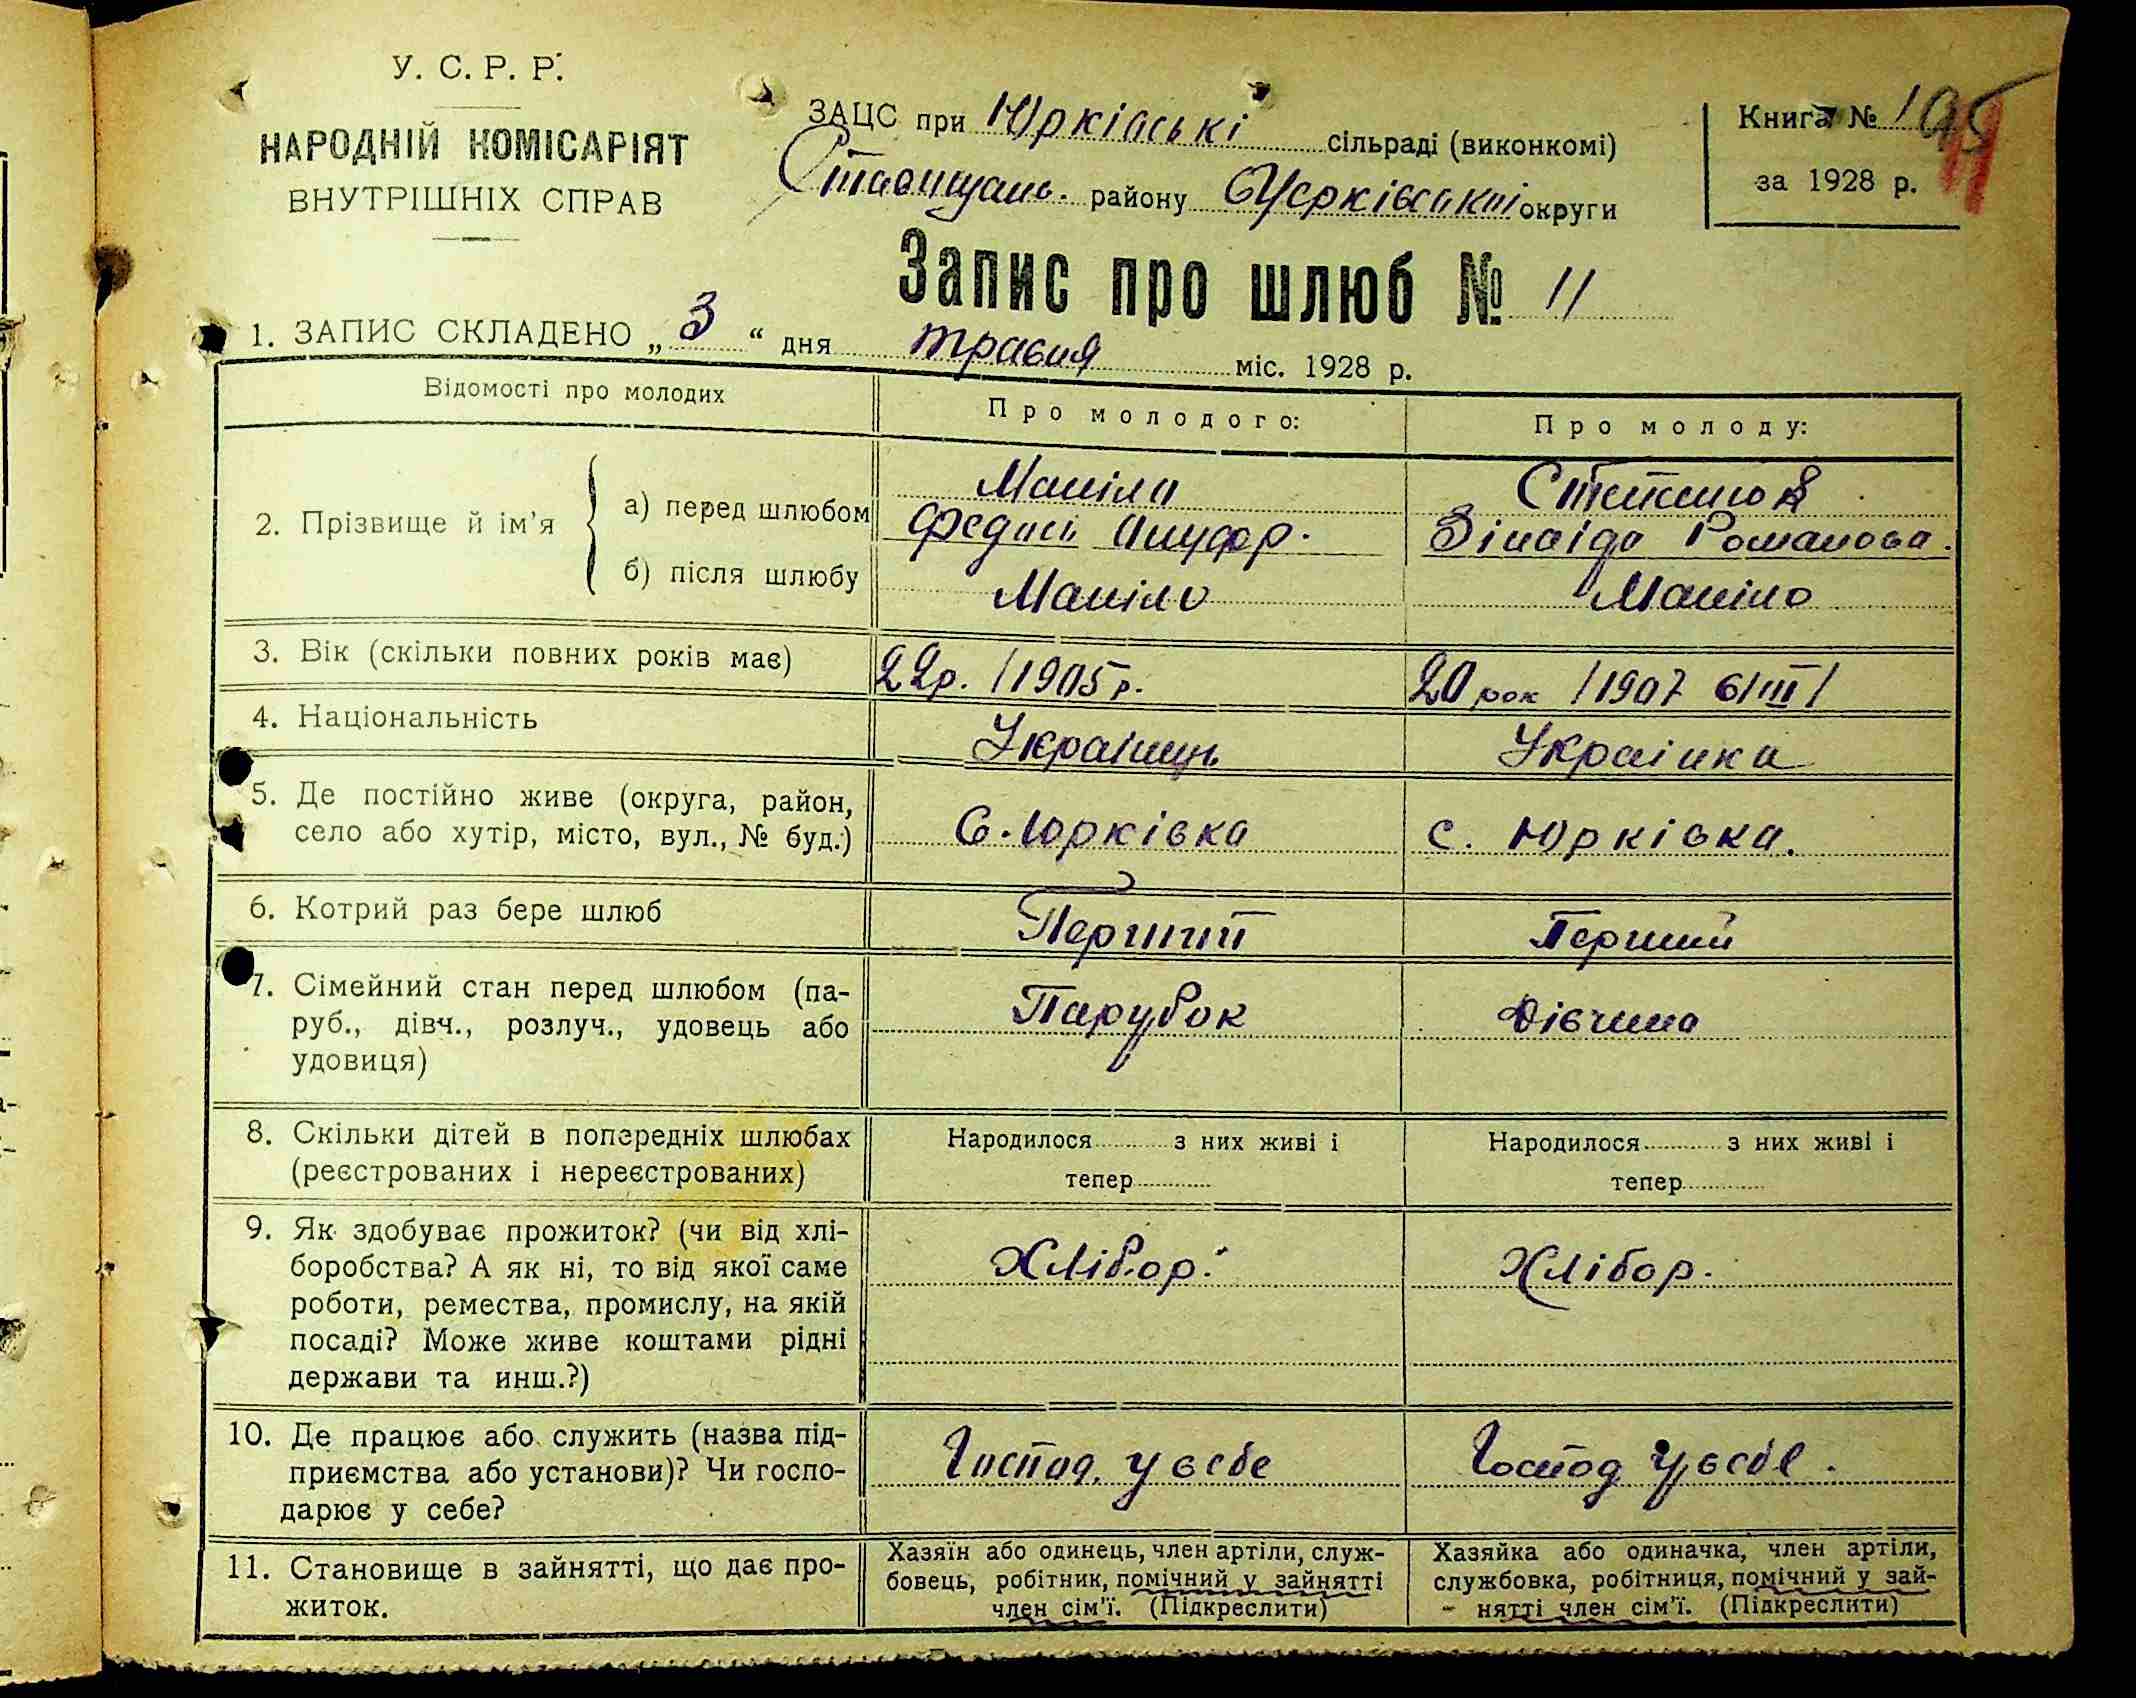 У. С. Р. Р.
НАРОДНІЙ КОМІСАРІЯТ
ВНУТРІШНІХ СПРАВ
ЗАЦС при Юрківські сільраді (виконкомі)
Ставищань. району БЦерківськiй округи
Книга №
за 1928 р.
Запис про шлюб № 11
1. ЗАПИС СКЛАДЕНО „ 3 “ дня травня міс. 1928 р.
Відомості про молодих
Про молодого:
Про молоду:
2. Прізвище й ім’я
а) перед шлюбом
Маніла
Федось Ануфр.
Зінаіда Романова.
б) після шлюбу
Маніло
Маніло
3. Вік (скільки повних років має)
22р. /1905 р.
20 рок /1907 6/III/
4. Національність
Україниць
Украінка
5. Де постійно живе (округа, район,
село або хутір, місто, вул., № буд.)
С. Юрківка
с. Юрківка.
6. Котрий раз бере шлюб
Перший
Перший
7. Сімейний стан перед шлюбом (па-
руб., дівч., розлуч., удовець або
удовиця)
Парубок
Дівчина
8. Скільки дітей в попередніх шлюбах
(реєстрованих і нереєстрованих)
Народилося з них живі і
тепер
Народилося з них живі і
тепер
9. Як здобуває прожиток? (чи від хлі-
боробства? А як ні, то від якої саме
роботи, ремества, промислу, на якій
посаді? Може живе коштами рідні
держави та инш.?)
Хлібор.
Хлібор.
10. Де працює або служить (назва під-
приємства або установи)? Чи госпо-
дарює у себе?
Господ. у себе
Господ у себе.
11. Становище в зайнятті, що дає про-
житок.
Хазяїн або одинець, член артіли, служ-
бовець, робітник, помічний у зайнятті
член сім’ї. (Підкреслити)
Хазяйка або одиначка, член артіли,
службовка, робітниця, помічний у зай-
нятті член сім’ї. (Підкреслити)